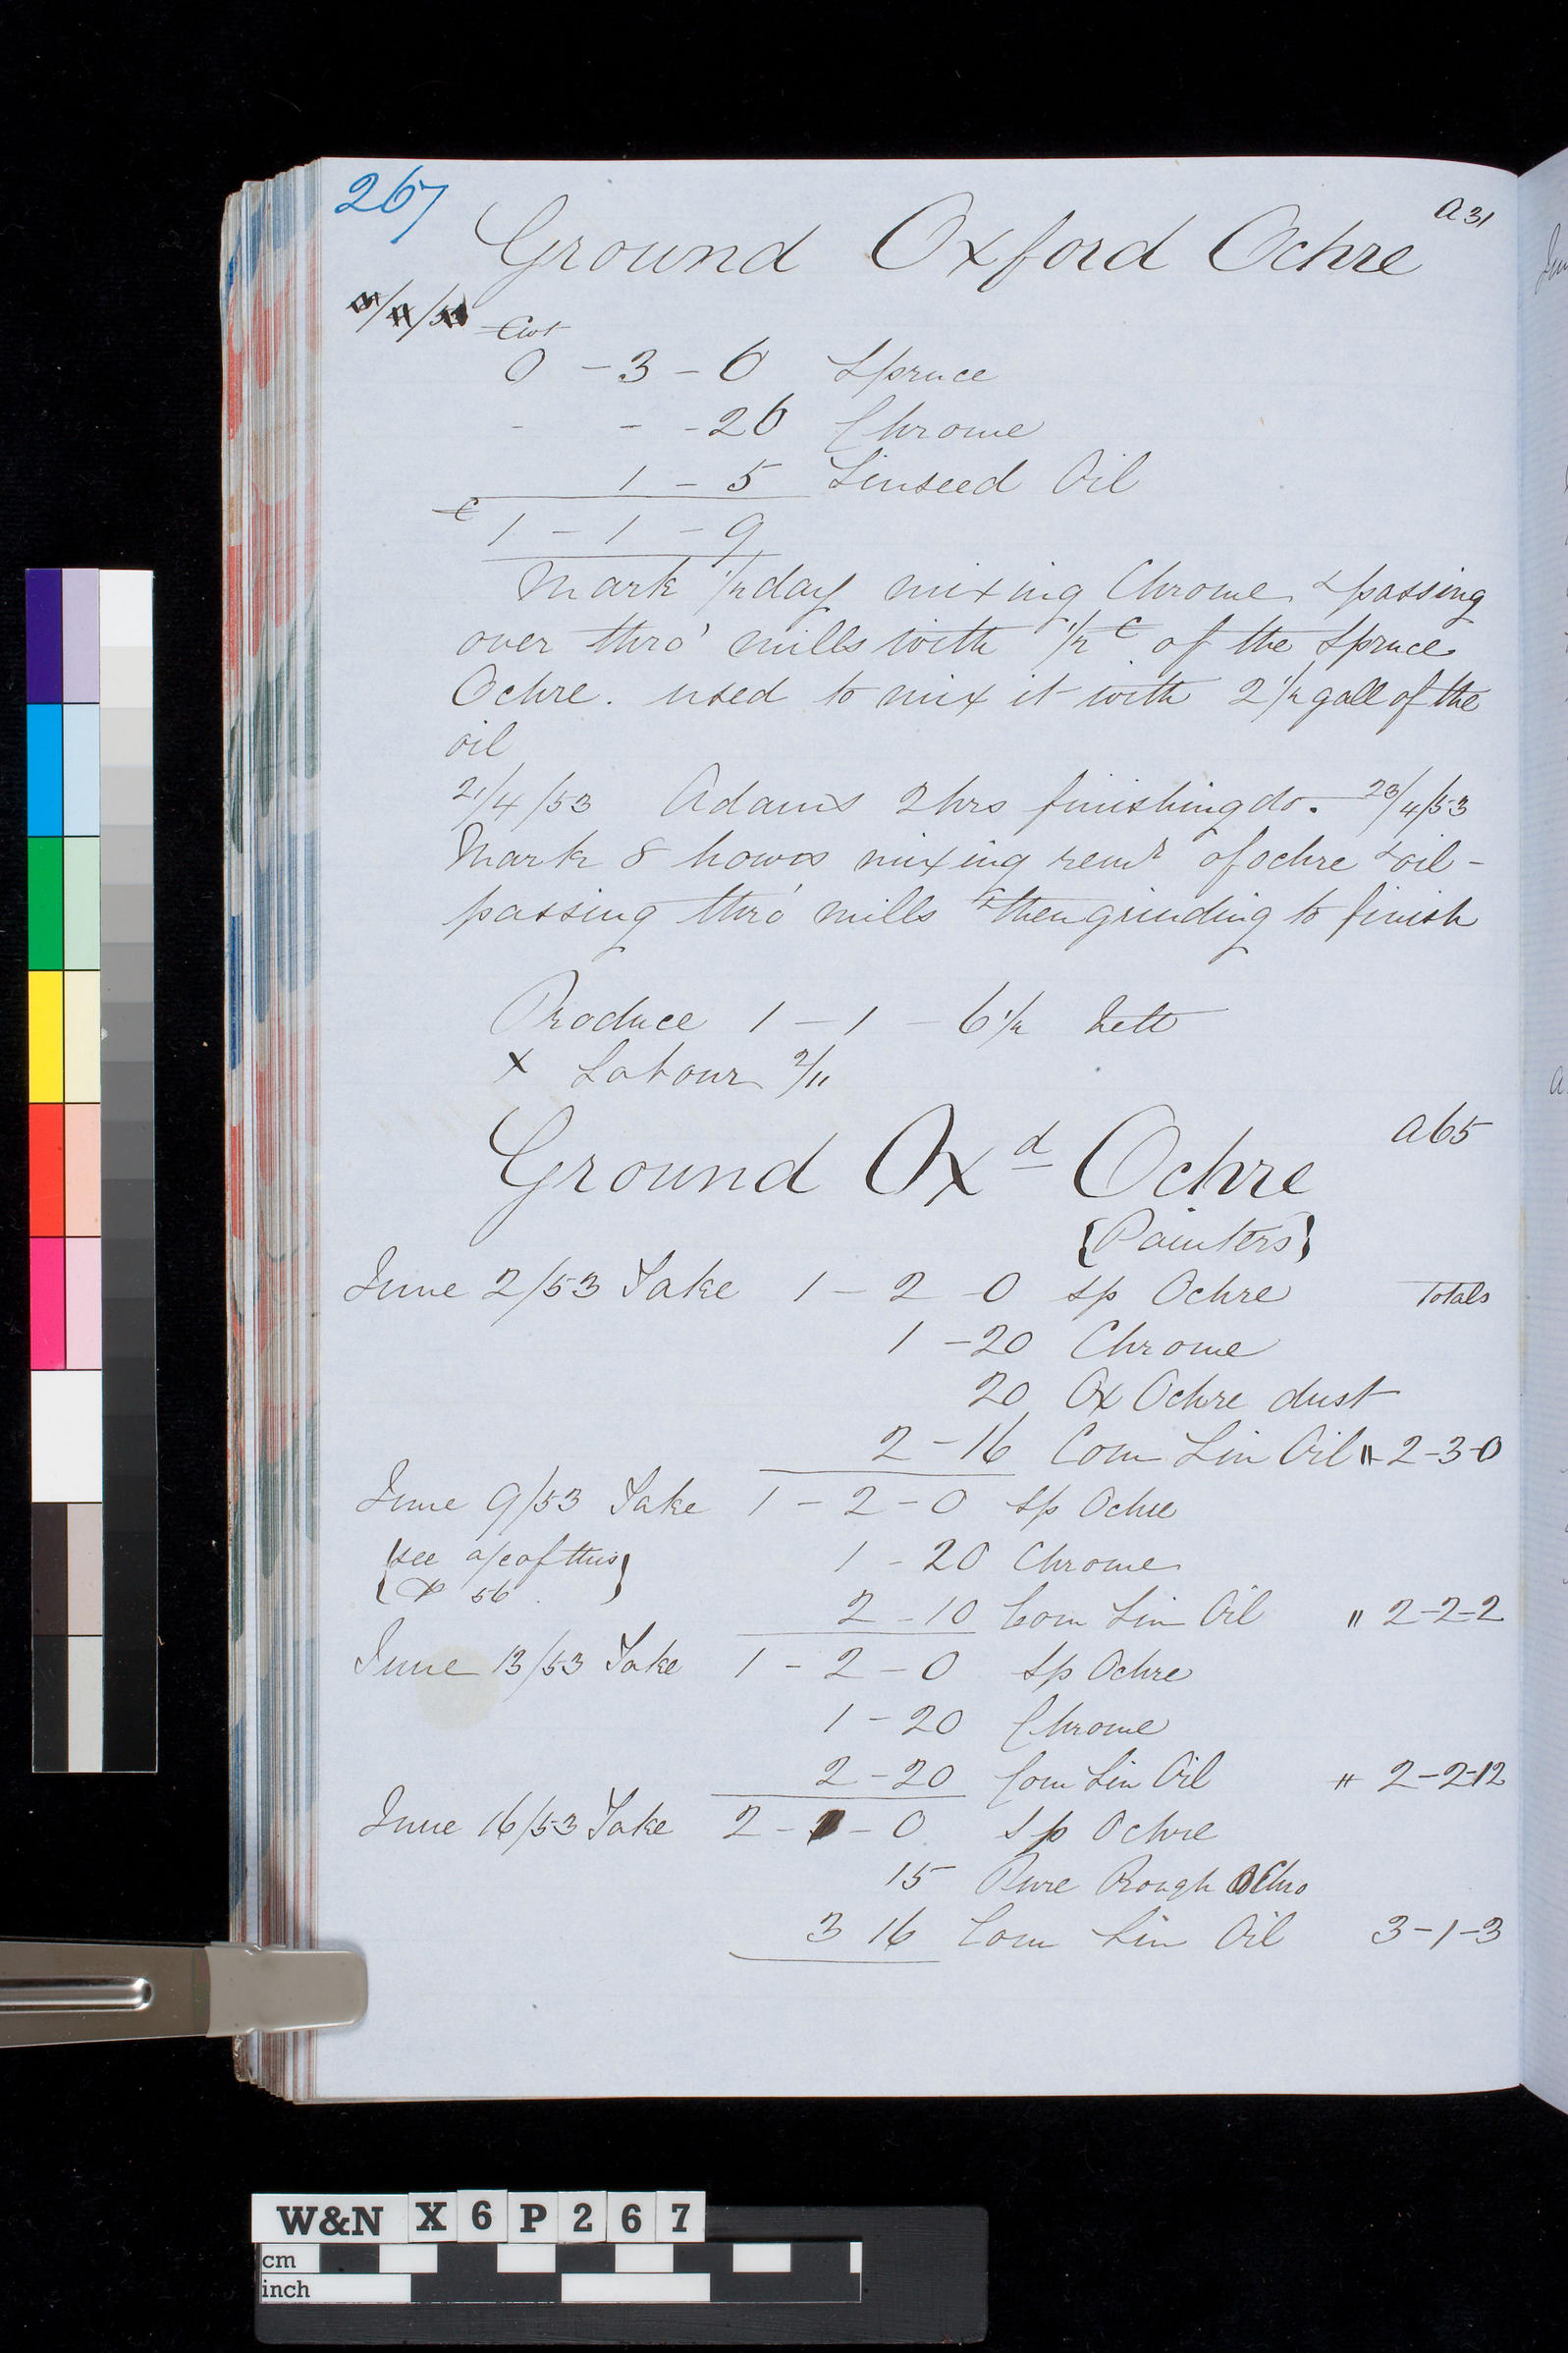 267
Ground Oxford Ochre a31
Cwt
0 - 3 - 6 Spruce
- - - 26 Chrome
1 - 5 Linseed Oil
C 1 - 1 - 9
Mark 1/2 day mixing Chrome & passing
over thro' mills with 1/2 C of the Spruce
Ochre. used to mix it with 2 1/2 gall of the
oil
21/4/53 Adams 2 hrs finishing do. 23/4/53
Mark 8 hours mixing remr of ochre & oil -
passing thro' mills & then grinding to finish
Produce 1 - 1 - 6 1/2 nett
x Labour 2/11
Ground Oxd Ochre a65
{Painters}
June 2/53 Take 1 - 2 0 sp Ochre Totals
1 - 20 Chrome
20 Ox Ochre dust
2 - 16 Com Lin Oil " 2-3-0
June 9/53 Take 1 - 2 - 0 sp Ochre
{see a/c of this
P 56.}
1 - 20 Chrome
2 - 10 Com Lin Oil " 2-2-2
June 13/53 Take 1 - 2 - 0 sp Ochre
1 - 20 Chrome
2 - 20 Com Lin Oil " 2-2-12
June 16/53 Take 2 - - 0 sp Ochre
15 Pure Rough Chro
3 16 Com Lin Oil 3-1-3
W&N X 6 P 2 6 7
cm
inch